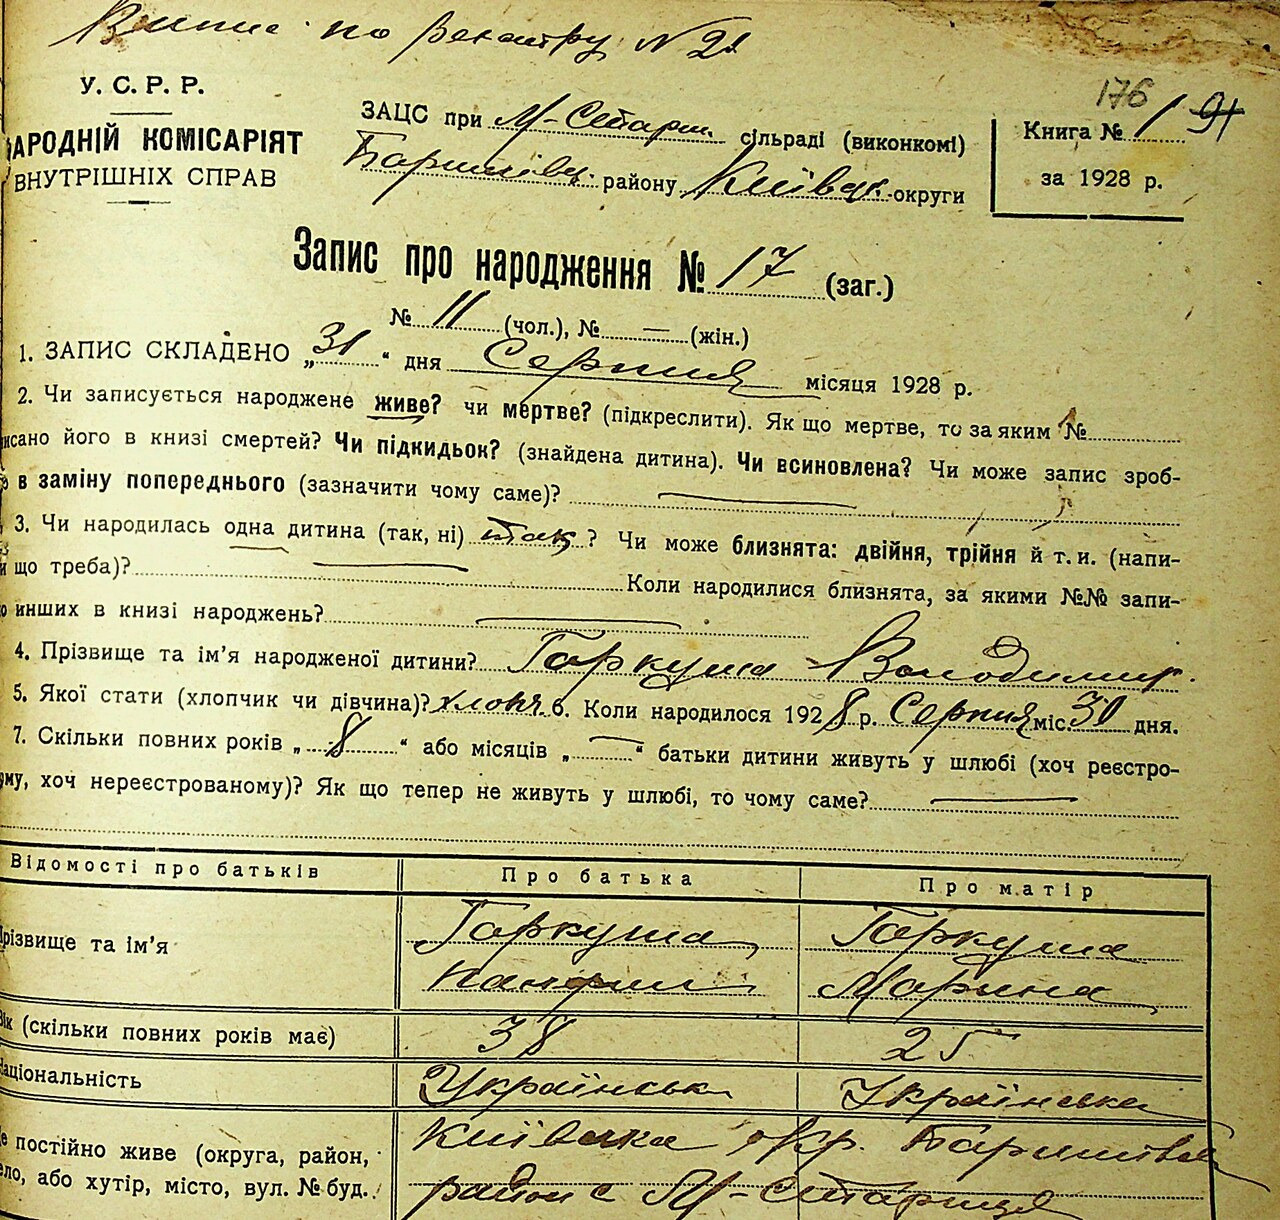 Випис по реєстру № 21
У. С. Р. Р.
НАРОДНІЙ КОМІСАРІЯТ
ВНУТРІШНІХ СПРАВ
ЗАЦС при М-Стариц. сільраді (виконкомі)
Баришівск. районy Київськ. округи
176
Книга № 1 91
за 1928 р.
Запис про народження № 17 (заг.)
№ 11 (чол.), № — (жін.)
1. ЗАПИС СКЛАДЕНО „31“ дня Серпня місяця 1928 р.
2. Чи записується народжене живе? чи мертве? (підкреслити). Як що мертве, то за яким №
писано його в книзі смертей? Чи підкидьок? (знайдена дитина). Чи всиновлена? Чи може запис зроб-
в заміну попереднього (зазначити чому саме)?
3. Чи народилась одна дитина (так, ні) так? Чи може близнята: двійня, трійня й т. и. (напи-
и що треба)? Коли народилися близнята, за якими №№ запи-
о инших в книзі народжень?
4. Прізвище та ім'я народженої дитини? Гаркуша Володимир.
5. Якої стати (хлопчик чи дівчина)? хлопч. 6. Коли народилося 1928 р. Серпня міс. 30 дня.
7. Скільки повних років „8“ або місяців „—“ батьки дитини живуть у шлюбі (хоч реєстро-
ому, хоч нереєстрованому)? Як що тепер не живуть у шлюбі, то чому саме?
Відомості про батьків Про батька Про матір
Прізвище та ім'я Гаркуша Гаркуша
Панфил Марина
Вік (скільки повних років має) 38 25
Національність Українськ Українська
Де постійно живе (округа, район, Київська окр. Баришівськ
село, або хутір, місто, вул. № буд. район с М-Стариця